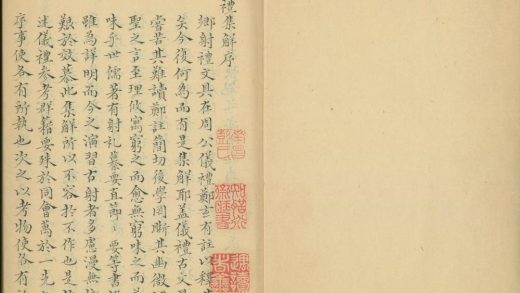 禮集解序
鄉射禮文具在周公儀禮鄭玄有註以釋其
矣今復何為而有是集解耶蓋儀禮古文是
嘗苦其難讀鄭註簡切後學罔斷其幽微
聖之言至理攸寓窮之而愈無窮味之而
味乎世儒著有射礼纂要直節要等書
雖為詳明而今之演習古射者多慮漫無
艱於效慕此集解所以不容於不作也是
述儀禮參考群籍要殊於同會萬於一先
序事使各有所執也次之以考物使各有